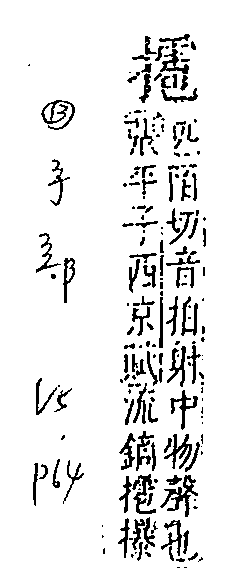 匹陌切音拍射中物聲也
張平子西京賦流鏑㩧
⑬ 手部 V5. P64